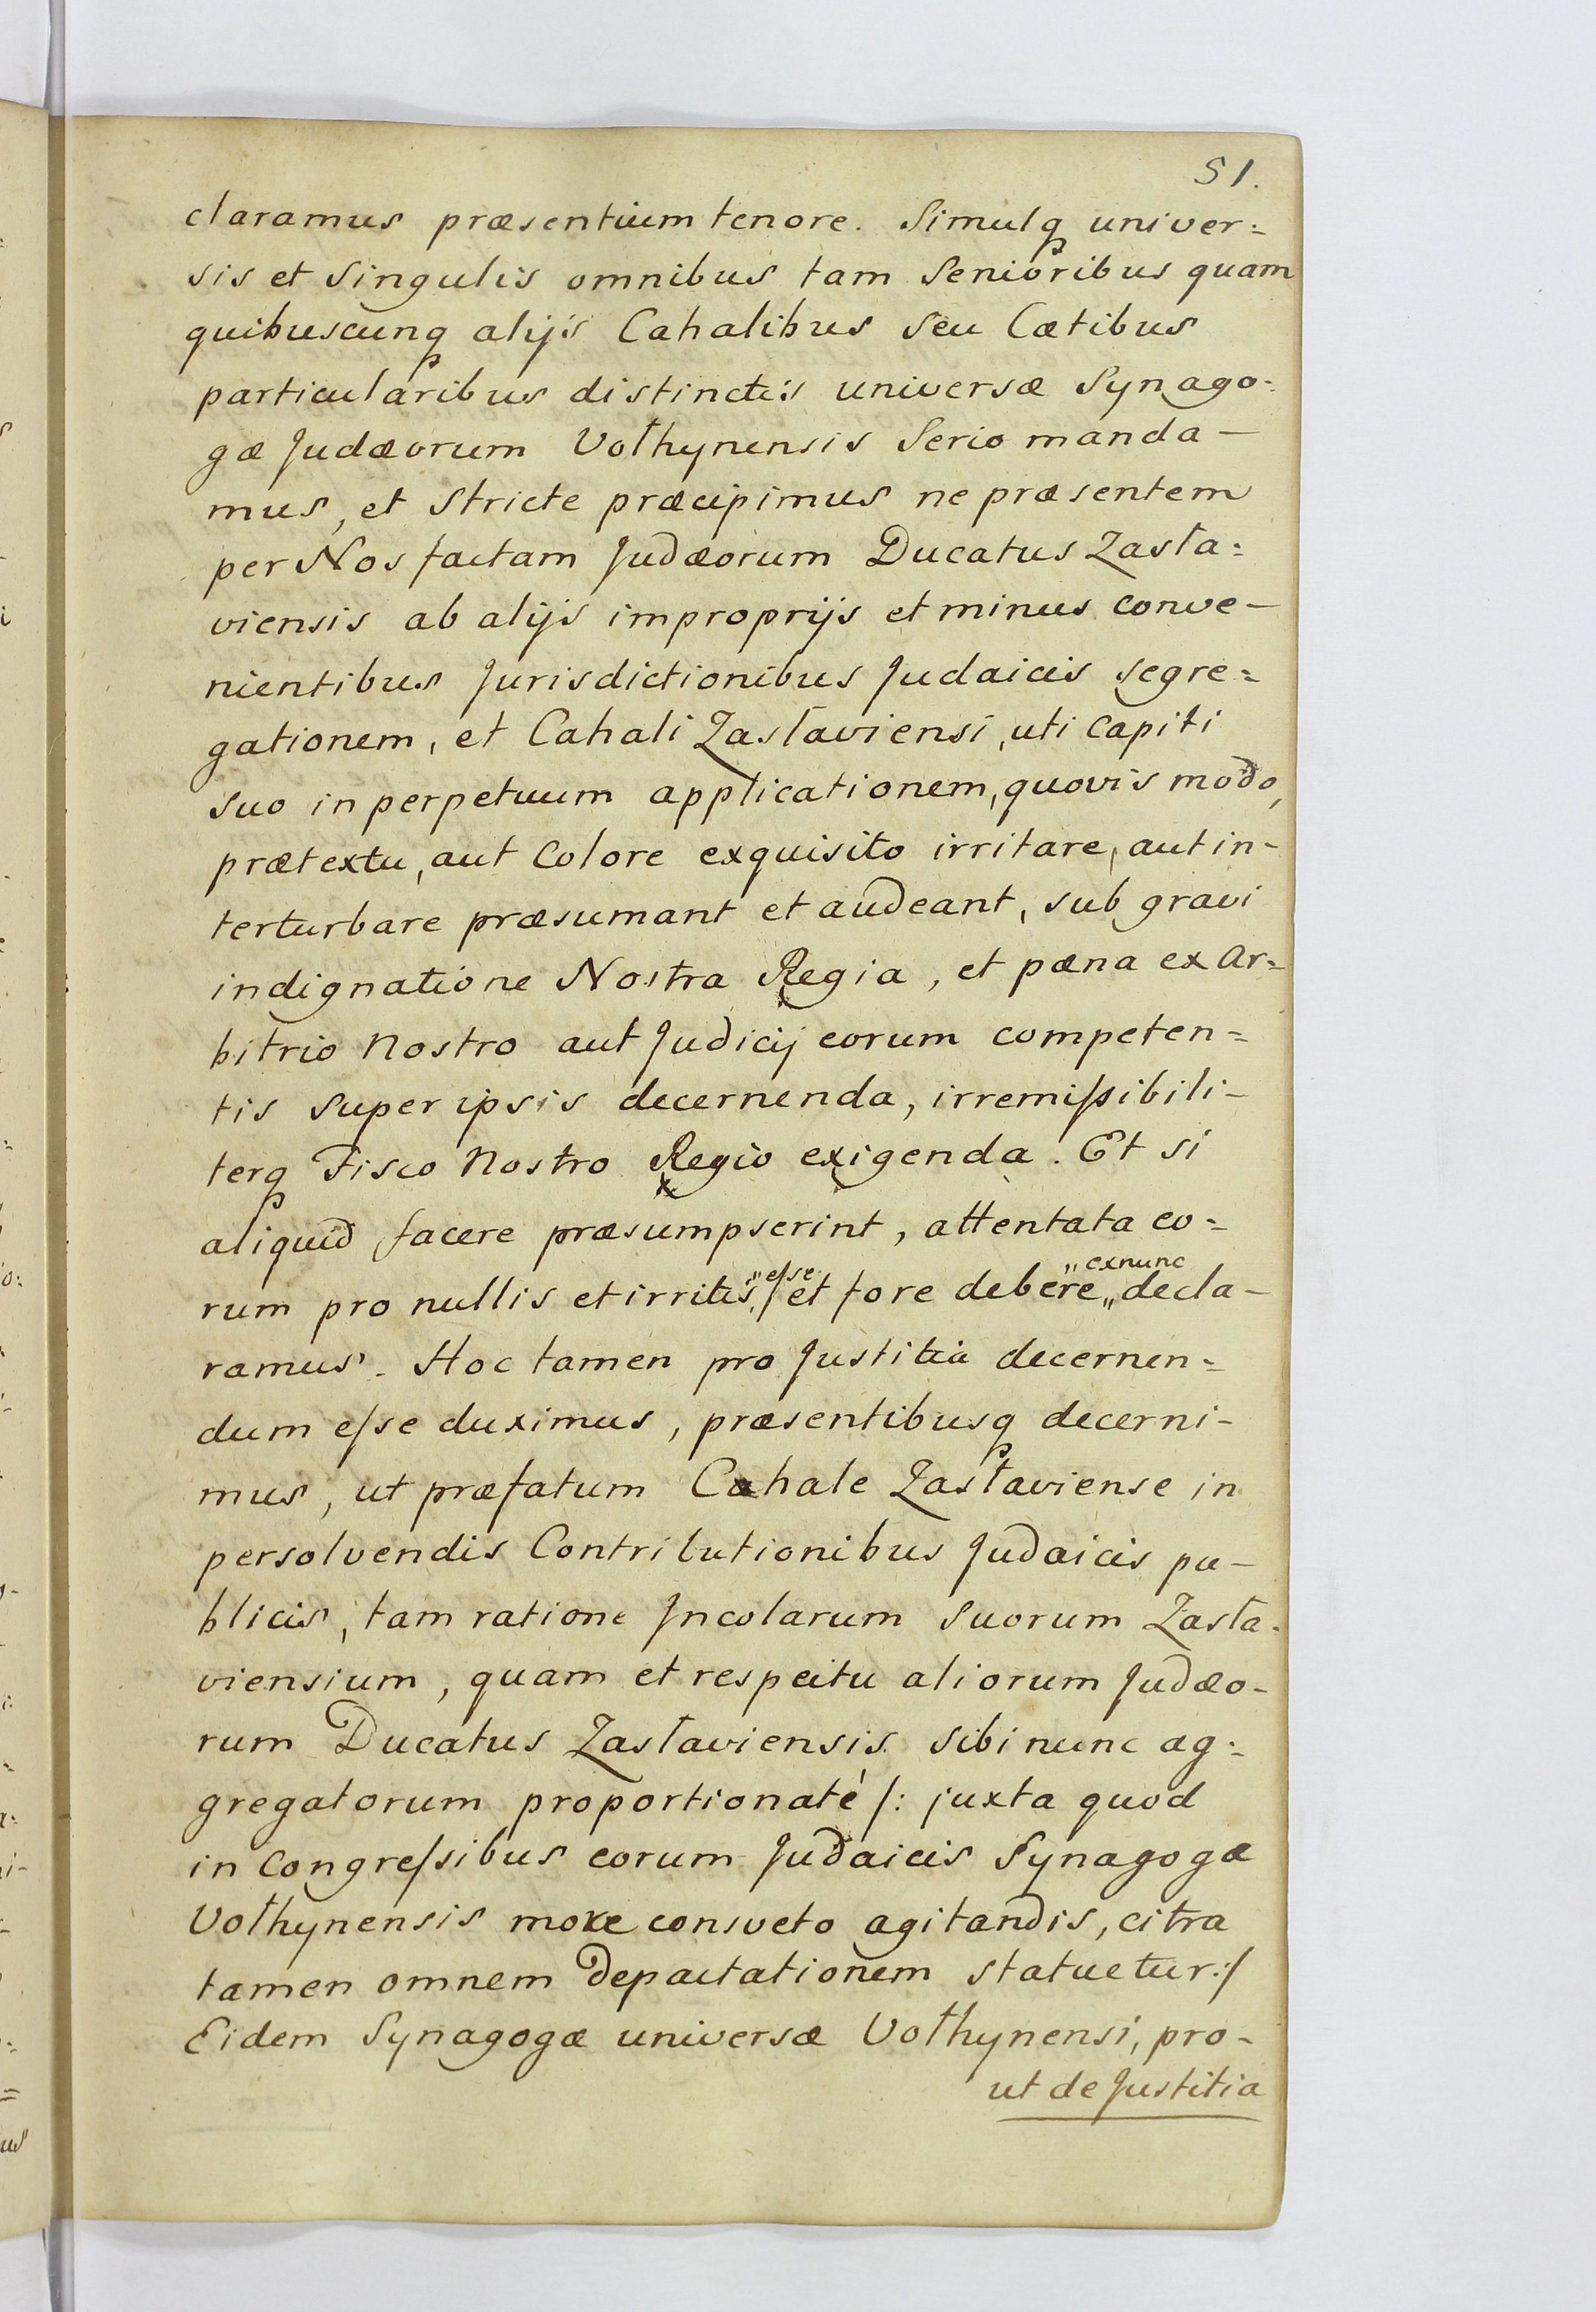 51.
claramus præsentium tenore. Simulq univer=
sis et singulis omnibus tam Senioribus quam
quibuscunq alijs Cahalibus seu Cætibus
particularibus distinctis universæ Synago=
gæ Judæorum Vołhynensis Serio manda-
mus, et stricte præcipimus ne præsentem
per Nos factam Judæorum Ducatus Zasła=
viensis ab alijs improprijs et minus conve-
nientibus Jurisdictionibus Judaicis segre=
gationem, et Cahali Zasłaviensi, uti capiti
suo in perpetuum applicationem, quovis modo,
prætextu, aut Colore exquisito irritare, aut in-
terturbare præsumant et audeant, sub gravi
indignatione Nostra Regia, et pæna ex Ar=
bitrio Nostro aut Judicij eorum competen=
tis super ipsis decernenda, irremissibili-
terq Fisco Nostro Regio exigenda. Et si
aliquid facere præsumpserint, attentata eo=
rum pro nullis et irritis, „esse et fore debere „exnunc„ decla-
ramus. Hoc tamen pro Justitia decernen=
dum esse duximus, præsentibusq decerni-
mus, ut præfatum Cahale Zasłaviense in
persolvendis Contributionibus Judaicis pu-
blicis, tam ratione Incolarum suorum Zasła-
viensium, quam et respectu aliorum Judæo-
rum Ducatus Zasłaviensis sibi nunc ag=
gregatorum proportionaté /: juxta quod
in Congressibus eorum Judaicis Synagogæ
Vołhynensis more consveto agitandis, citra
tamen omnem depactationem statuetur:/
Eidem Synagogæ universæ Vołhynensi, pro-
ut de Justitia